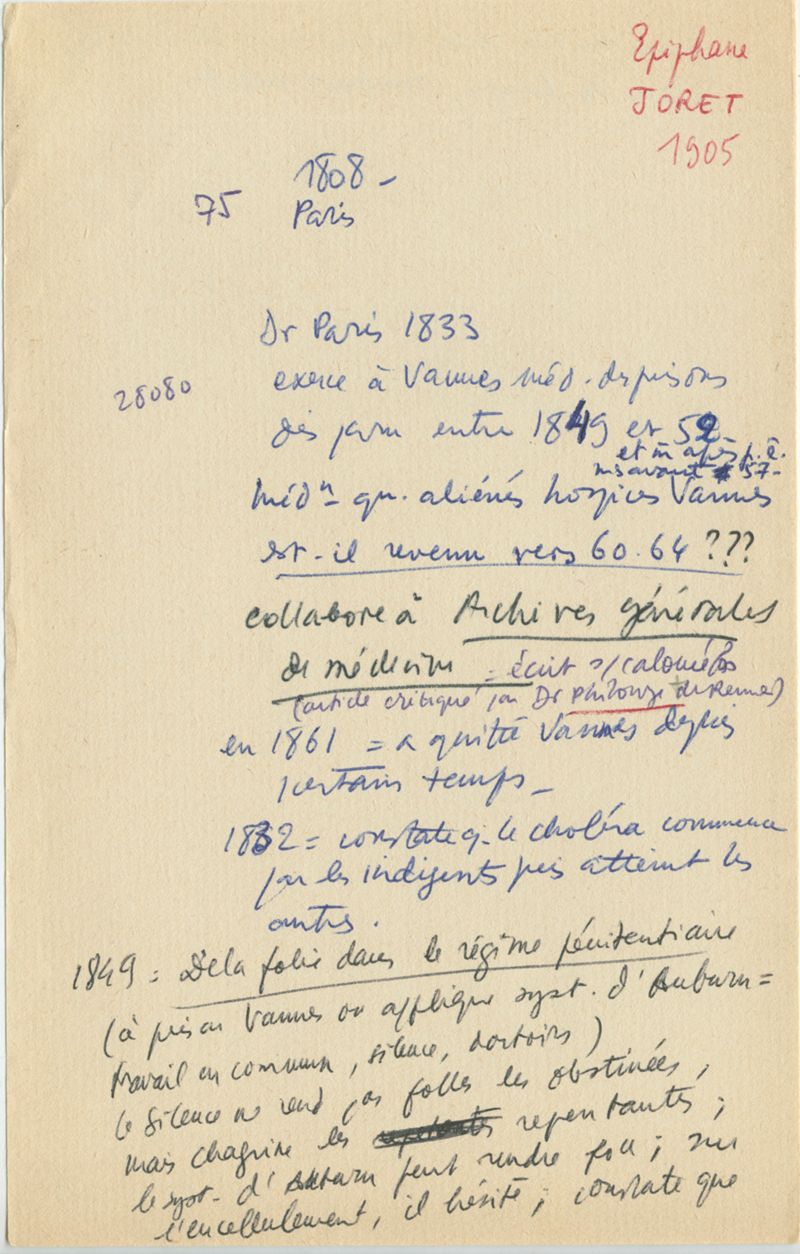 Epiphane
JORET
1905
1808 -
75 Paris
Dr Paris 1833
28080
exerce à Vannes méd. des prisons
dès janv entre 1849 et 52 -
et m après p. ê.
ms avant 57 -
Méd n - qu. aliénés hospices Vannes
est-il revenu vers 60.64 ???
collabore à Archives générales
de médecine = écrit s/calomélas
(article critiqué par Dr de Rennes)
en 1861 = a quitté Vannes depuis
certain temps -
1832 = constate q. le choléra commence
par les indigents puis atteint les
autres.
1849 = De la folie dans le régime pénitentiaire
(à prison Vannes on applique syst. d'Auburn =
travail en commun, silence, dortoirs)
le silence ne rend pas folles les obstinées,
mais chagrine les repentantes ;
le syst. d'Auburn peut rendre fou ; sur
l'encellulement, il hésite ; constate que